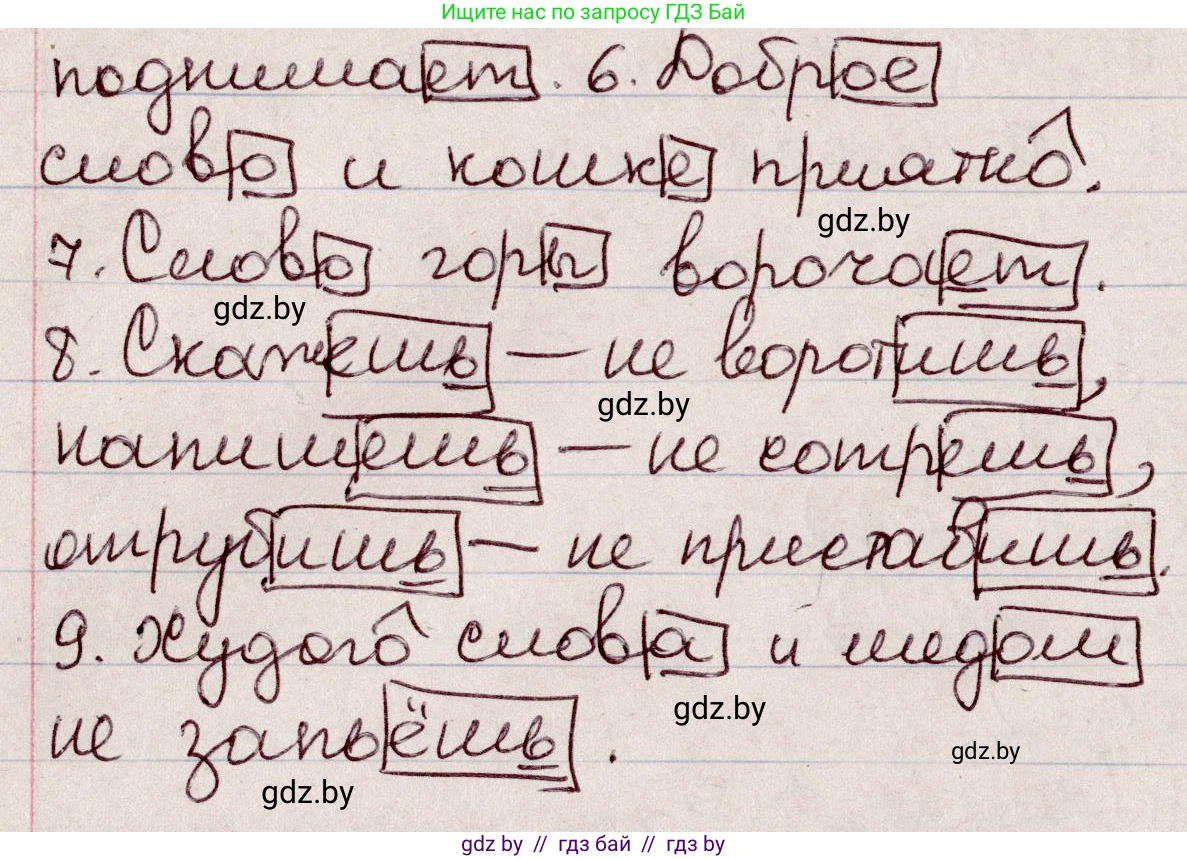 Ищите нас по запросу ГДЗ Бай
поднимает. 6. Доброе
слово и кошке приятно.
gdz.by
7. Слово горы ворочает.
gdz.by
8. Скажешь — не воротишь,
gdz.by
напишешь — не сотрешь,
отрубишь — не приставишь.
9. Худого слова и медом
gdz.by
не запьёшь.
gdz.by
gdz.by
gdz by // гдз бай // гдз by